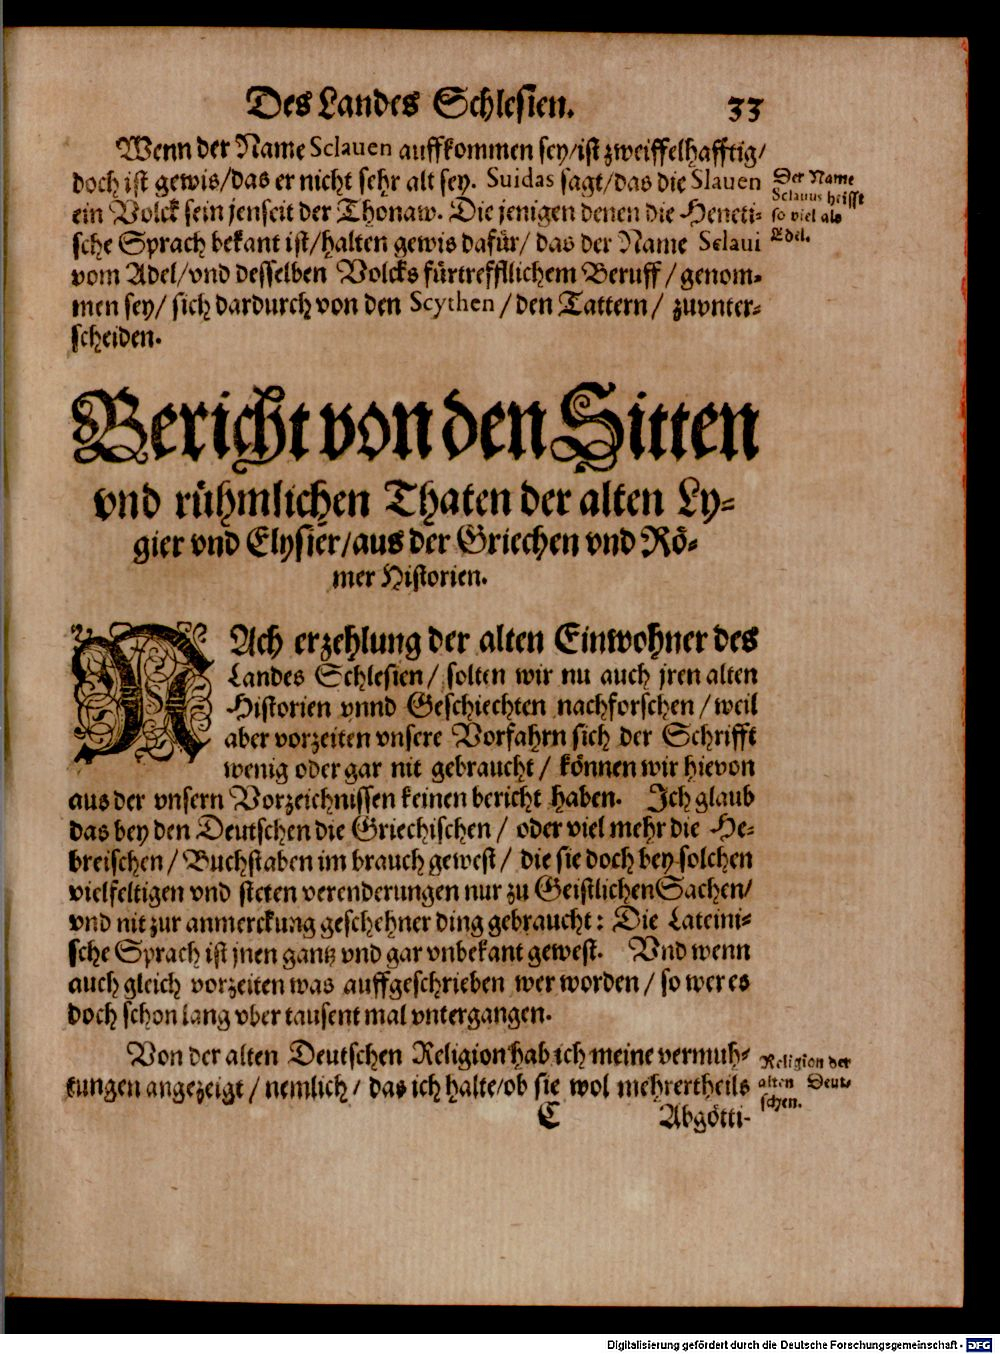 Des Landes Schlesien. 33
Wenn der Name Sclauen auffkommen sey/ist zweiffelhafftig/
doch ist gewis/das er nicht sehr alt sey. Suidas sagt/das die Slauen
ein Volck sein jenseit der Thonaw. Die jenigen denen die Heneti-
sche Sprach bekant ist/halten gewis dafür/ das der Name Sclaui
vom Adel/vnd desselben Volcks fürtrefflichem Beruff/genom-
men sey/ sich dardurch von den Scythen/den Tattern/ zuvnter-
scheiden.
Der Name
Sclauus heisst
so viel als
Edel.
Bericht von den Sitten
vnd rühmlichen Thaten der alten Ly-
gier vnd Elysier/aus der Griechen vnd Rö-
mer Historien.
NAch erzehlung der alten Einwohner des
Landes Schlesien/ solten wir nu auch jren alten
Historien vnnd Geschiechten nachforschen/weil
aber vorzeiten vnsere Vorfahrn sich der Schrifft
wenig oder gar nit gebraucht/ können wir hievon
aus der vnsern Vorzeichnissen keinen bericht haben. Ich glaub
das bey den Deutschen die Griechischen/ oder viel mehr die He-
breischen/Buchstaben im brauch gewest/ die sie doch bey solchen
vielfeltigen vnd steten verenderungen nur zu Geistlichen Sachen/
vnd nit zur anmerckung geschehner ding gebraucht: Die Lateini-
sche Sprach ist jnen gantz vnd gar vnbekant gewest. Vnd wenn
auch gleich vorzeiten was auffgeschrieben wer worden/ so wer es
doch schon lang vber tausent mal vntergangen.
Von der alten Deutschen Religion hab ich meine vermuh-
tungen angezeigt/ nemlich/ das ich halte/ob sie wol mehrertheils
Religion der
alten Deut-
schen.
C Abgötti-
Digitalisierung gefördert durch die Deutsche Forschungsgemeinschaft - DFG